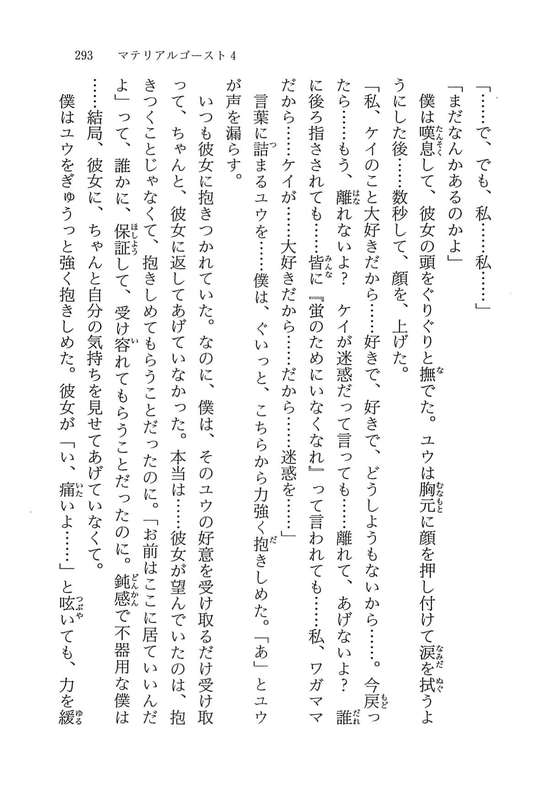 293 マテリアルゴースト4
「……で、でも、私……私……」
「まだなんかあるのかよ」
僕は嘆息して、彼女の頭をぐりぐりと撫でた。ユウは胸元に顔を押し付けて涙を拭うよ
うにした後……数秒して、顔を、上げた。
「私、ケイのこと大好きだから……好きで、好きで、どうしようもないから……。今戻っ
たら……もう、離れないよ？　ケイが迷惑だって言っても……離れて、あげないよ？　誰
に後ろ指さされても……皆に『蛍のためにいなくなれ』って言われても……私、ワガママ
だから……ケイが……大好きだから……だから……迷惑を……」
言葉に詰まるユウを……僕は、ぐいっと、こちらから力強く抱きしめた。「あ」とユウ
が声を漏らす。
いつも彼女に抱きつかれていた。なのに、僕は、そのユウの好意を受け取るだけ受け取
って、ちゃんと、彼女に返してあげていなかった。本当は……彼女が望んでいたのは、抱
きつくことじゃなくて、抱きしめてもらうことだったのに。「お前はここに居ていいんだ
よ」って、誰かに、保証して、受け容れてもらうことだったのに。鈍感で不器用な僕は
……結局、彼女に、ちゃんと自分の気持ちを見せてあげていなくて。
僕はユウをぎゅうっと強く抱きしめた。彼女が「い、痛いよ……」と呟いても、力を緩